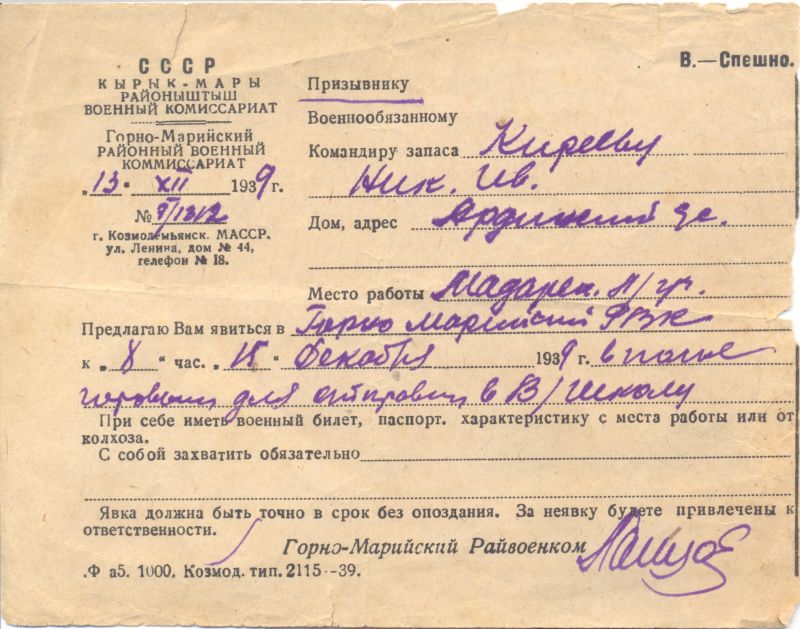 В.—Спешно.
СССР
КЫРЫК-МАРЫ
РАЙОНЫШТЫШ
ВОЕННЫЙ КОМИССАРИАТ
Горно-Марийский
РАЙОННЫЙ ВОЕННЫЙ
КОММИССАРИАТ
„ 13 " XII 1939 г.
№
г. Козмодемьянск. МАССР.
ул. Ленина, дом № 44,
телефон № 18.
Призывнику
Военнообязанному
Командиру запаса Кирееву
Ник. Ив.
Дом, адрес Ардинский с.
Место работы
Предлагаю Вам явиться в Горно Марийский РВК
к „ 8 " час. „ 15 " декабря 1939 г. в полне
готовым для отправки в В/школу
При себе иметь военный билет, паспорт. характеристику с места работы или от
колхоза.
С собой захватить обязательно
Явка должна быть точно в срок без опоздания. За неявку будете привлечены к
ответственности.
Горно-Марийский Райвоенком
.Ф а5. 1000. Козмод. тип. 2115--39.